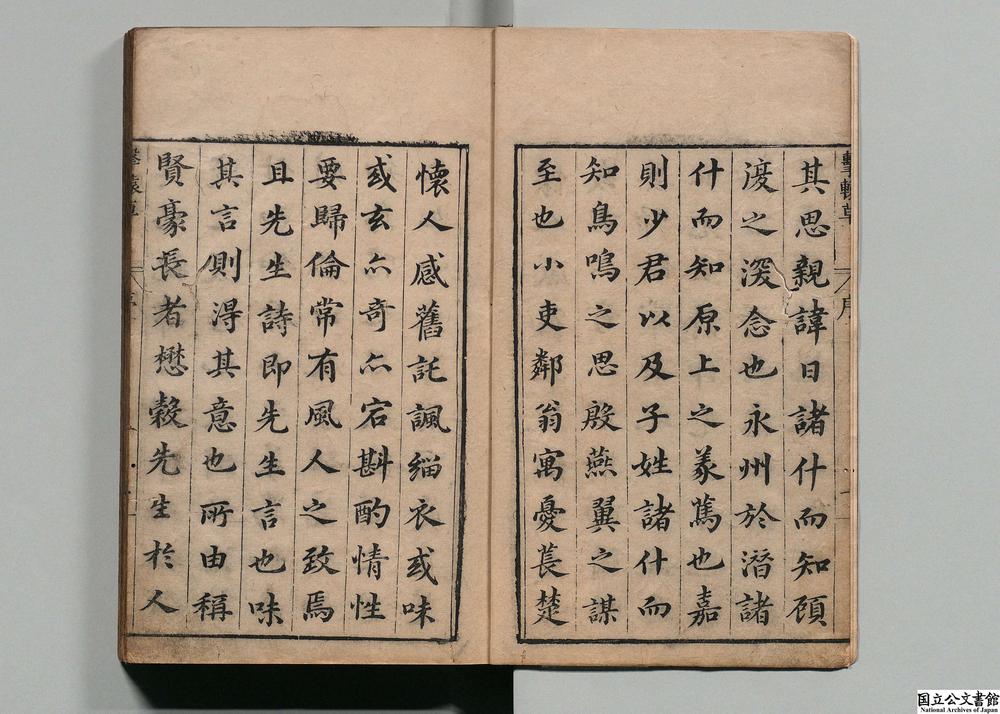 其思親諱日諸什而知頎
渡之深念也永州於潛諸
什而知原上之義篤也嘉
則少君以及子姓諸什而
知鳥鳴之思殷燕翼之謀
至也小吏鄰翁寓憂萇楚
懷人感舊託諷緇衣或味
或玄亦奇亦宕斟酌情性
要歸倫常有風人之致焉
且先生詩即先生言也味
其言則得其意也所由稱
賢豪長者懋穀先生於人
序
国立公文書館
National Archives of Japan